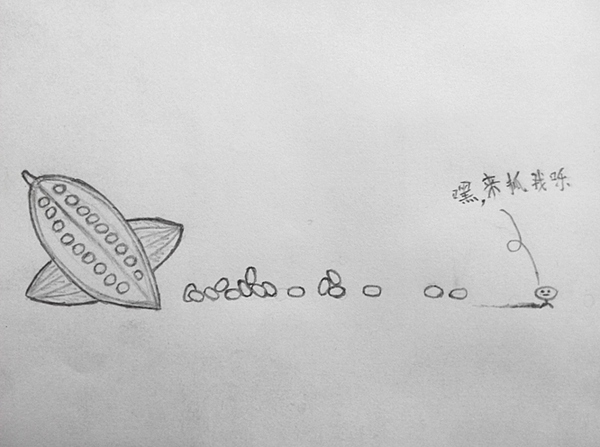 嘿,来抓我呀